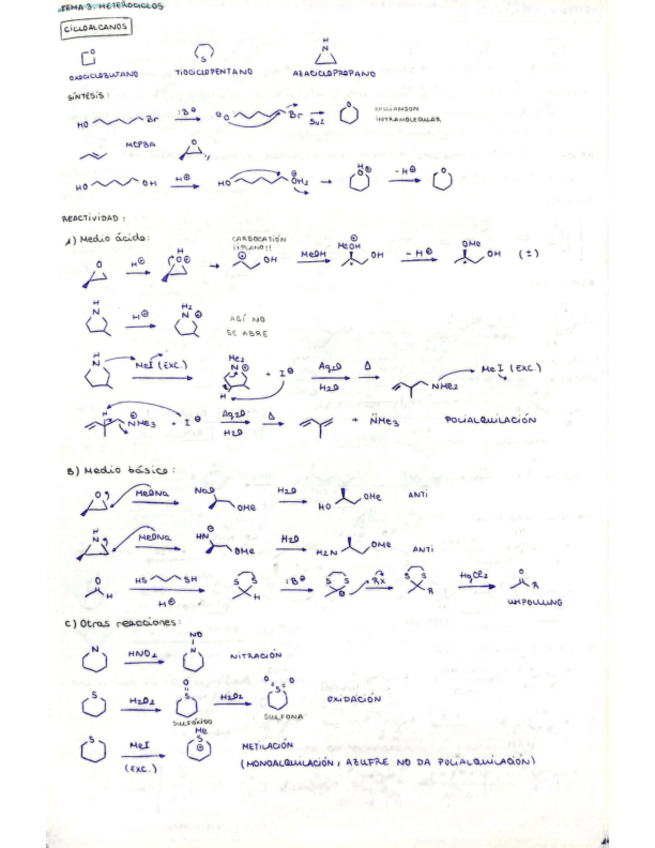 TEMA 3. HETEROCICLOS
CICLOALCANOS
O S H N
OXOCICLOBUTANO TIOCICLOPENTANO AZACICLOPROPANO
SÍNTESIS:
HO Br :B⊖ ⊖O Br SN2 O WILLIAMSON INTRAMOLECULAR
MCPBA O
HO OH H⊕ HO ⊕OH2 → H O⊕ -H⊕ O
REACTIVIDAD:
A) Medio ácido:
O H⊕ H O⊕ → CARBOCATIÓN ¡¡PLANO!! ⊕ OH MeOH MeOH ⊕ OH -H⊕ OMe OH (±)
H N H⊕ H2 N⊕ ASÍ NO SE ABRE
H N MeI (EXC.) Me2 N⊕ H + I⊖ Ag2O H2O Δ NMe2 MeI (EXC.)
H ⊕NMe3 + I⊖ Ag2O H2O Δ + NMe3 POLIALQUILACIÓN
B) Medio básico:
O MeONa NaO OMe H2O HO OMe ANTI
H N MeONa HN⊖ OMe H2O H2N OMe ANTI
O H HS SH H⊕ S S H :B⊖ S S ⊖ RX S S R HgCl2 O R
UMPOLUNG
C) Otras reacciones:
N HNO2 NO N NITRACIÓN
S H2O2 O S SULFÓXIDO H2O2 O S O SULFONA OXIDACIÓN
S MeI (EXC.) Me S ⊕ METILACIÓN
(MONOALQUILACIÓN, AZUFRE NO DA POLIALQUILACIÓN)